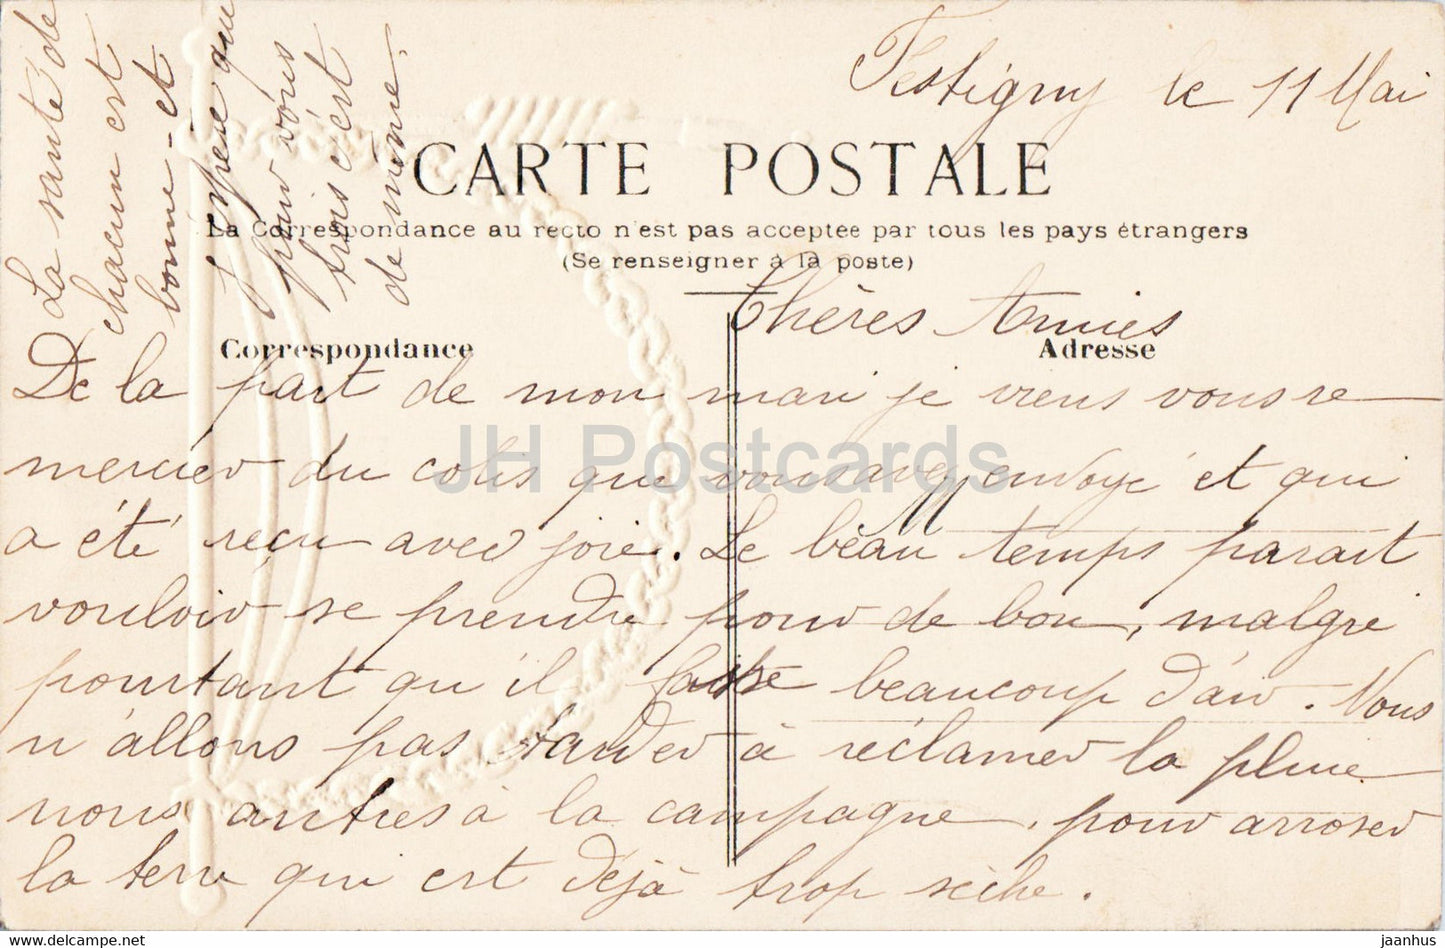 Festigny le 11 Mai
CARTE POSTALE
La Correspondance au recto n'est pas acceptée par tous les pays étrangers
(Se renseigner à la poste)
Correspondance
Adresse
Chères Amies
De la part de mon mari je viens vous re
mercier du colis que vous avez envoyé et qui
a été reçu avec joie. Le beau temps parait
M
vouloir se prendre pour de bon, malgré
pourtant qu'il fasse beaucoup d'air. Nous
n'allons pas tarder à réclamer la pluie
nous autres à la campagne, pour arroser
la terre qui est déjà trop sèche.
La santé de
chacun est
bonne et
j'espère que
pour vous
trois c'est
de même.
JH Postcards
www.delcampe.net
jaanhus